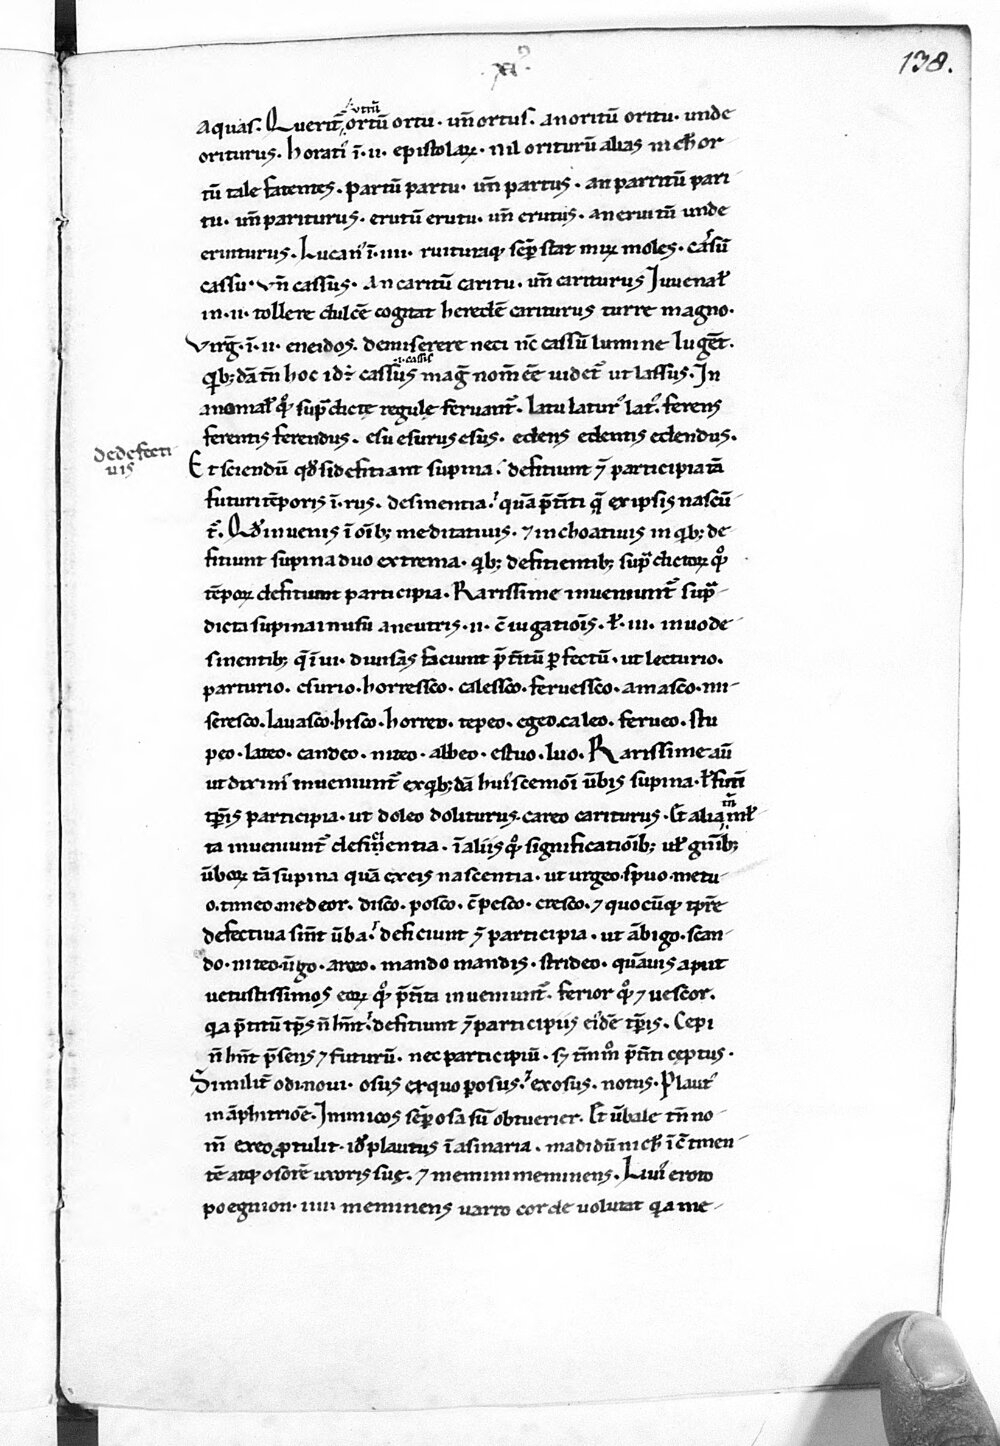 .xi.
138.
aquas. Querit̄ utrū ortū ortu. un̄ ortus. an oritū oritu. unde
oriturus. horati' ī .ii. epistolaꝝ. nil oriturū alias nichil or
tū tale fatentes. partū partu. un̄ partus. an parritū pari
tu. un̄ pariturus. erutū erutu. un̄ erutus. an eruitū unde
eruiturus. Lucan' ī .iiii. ruituraq; sēp stat mūꝝ moles. cassū
cassu. un̄ cassus. An caritū caritu. un̄ cariturus Juuenal̄
in .ii. tollere dulcē cogitat heredē cariturus turre magno.
Virḡ. ī .ii. eneidos. demisere neci nc̄ cassū lumine lugēt.
qb; dā tn̄ hoc id ÷ cassus .i. cassis maḡ nom̄ ēē uidet̄ ut lassus. In
anomal̄ qͦꝗ sup̄dictę regulę seruant̄. latu latur' lat'. ferens
ferentis ferendus. esu esurus esus. edens edentis edendus.
de defecti
uis
Et sciendū qd̄ si defitiant supina. defitiunt ⁊ participia tā
futuri tēporis ī .rus. desinentia. quā p̄t̄iti q̄ ex ipsis nascū
t̄. Qd̄ inuenis ī oīb; meditatiuis. ⁊ inchoatiuis in qb; de
fitiunt supina duo extrema. qb; defitientib; sup̄dictoꝝ qͦꝗ
tēpoꝝ defitiunt participia. Rarissime inueniunt̄ sup̄
dicta supina in usu a neutris .ii. c̄iugatiōis. l̄ .iii. in uo de
sinentib; q̄ ī ui. diuisas faciunt p̄t̄itū ꝑfectū. ut lecturio.
parturio. esurio. horresco. calesco. feruesco. amasco. mi
seresco. lauasco. hisco. horreo. tepeo. egeo. caleo. ferueo. stu
peo. lateo. candeo. niteo. albeo. estuo. luo. Rarissime aū
ut dixim' inueniunt̄ ex qb; dā hui'scemōi ūbis supina. l̄ futi
tp̄is participia. ut doleo doliturus. careo cariturus. Et alia tn̄ ml̄
ta inueniunt̄ deficientia. ī aliis qͦꝗ significatiōib; ul̄ gn̄ib;
ūboꝝ tā supina quā ex eis nascentia. ut urgeo. spuo. metu
o. timeo. medeor. disco. posco. c̄pesco. cresco. ⁊ quocūq; tp̄re
defectiua sint ūba. deficiunt ⁊ participia. ut ābigo. scan
do. niteo. ūgo. aueo. mando mandis. strideo. quāuis aput
uetustissimos eoꝝ qͦꝗ p̄t̄ita inueniunt̄. ferior qͦꝗ ⁊ uescor.
qa p̄t̄itū tp̄s n̄ hn̄t. defitiunt ⁊ participiis ei'dē tp̄is. Cepi
n̄ hn̄t p̄sens ⁊ futurū. nec participiū. s; tm̄m̊ p̄t̄iti cęptus.
Similit̄ odi. noui. osus ex quo ꝑosus. ⁊ exosus. notus. Plaut'
in āphitriōe. Inimicos sēp osa sū obtuerier. Et ūbale tn̄ no
m̄ ex eo ꝓtulit. id̄ plautus ī asinaria. madidū nichili ī c̄tinen
tē atq; osorē uxoris suę. ⁊ memini meminens. Liui' eroto
poegnion. iiii meminens uarro corde uolutat qa me